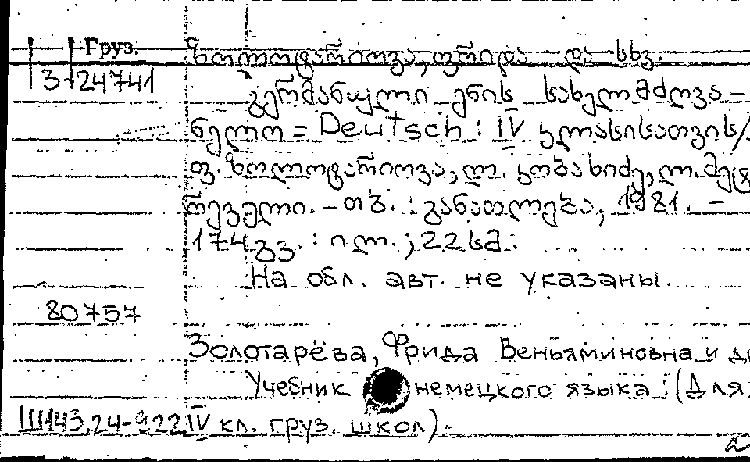 Груз.
ზოლოტარიოვა, ფრიდა და სხვ.
3-24741
გერმანული ენის სახელმძღვა-
ნელო = Deutsch : IV კლასისათვის/
ფ. ზოლოტარიოვა, ლ. კობახიძე, ლ. მეტ
რეველი. - თბ. : განათლება, 1981. -
174 გვ. : ილ. ; 22 სმ.
На обл. авт. не указаны.
80757
Золотарёва, Фрида Веньяминовна и др
Учебник немецкого языка : (Для
Ш143.24-922 IV кл. груз. школ).